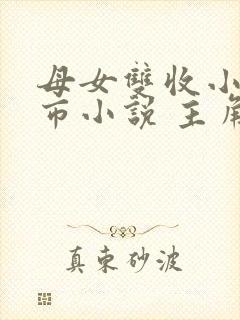 母女雙收小
市小說 主角
真東砂波